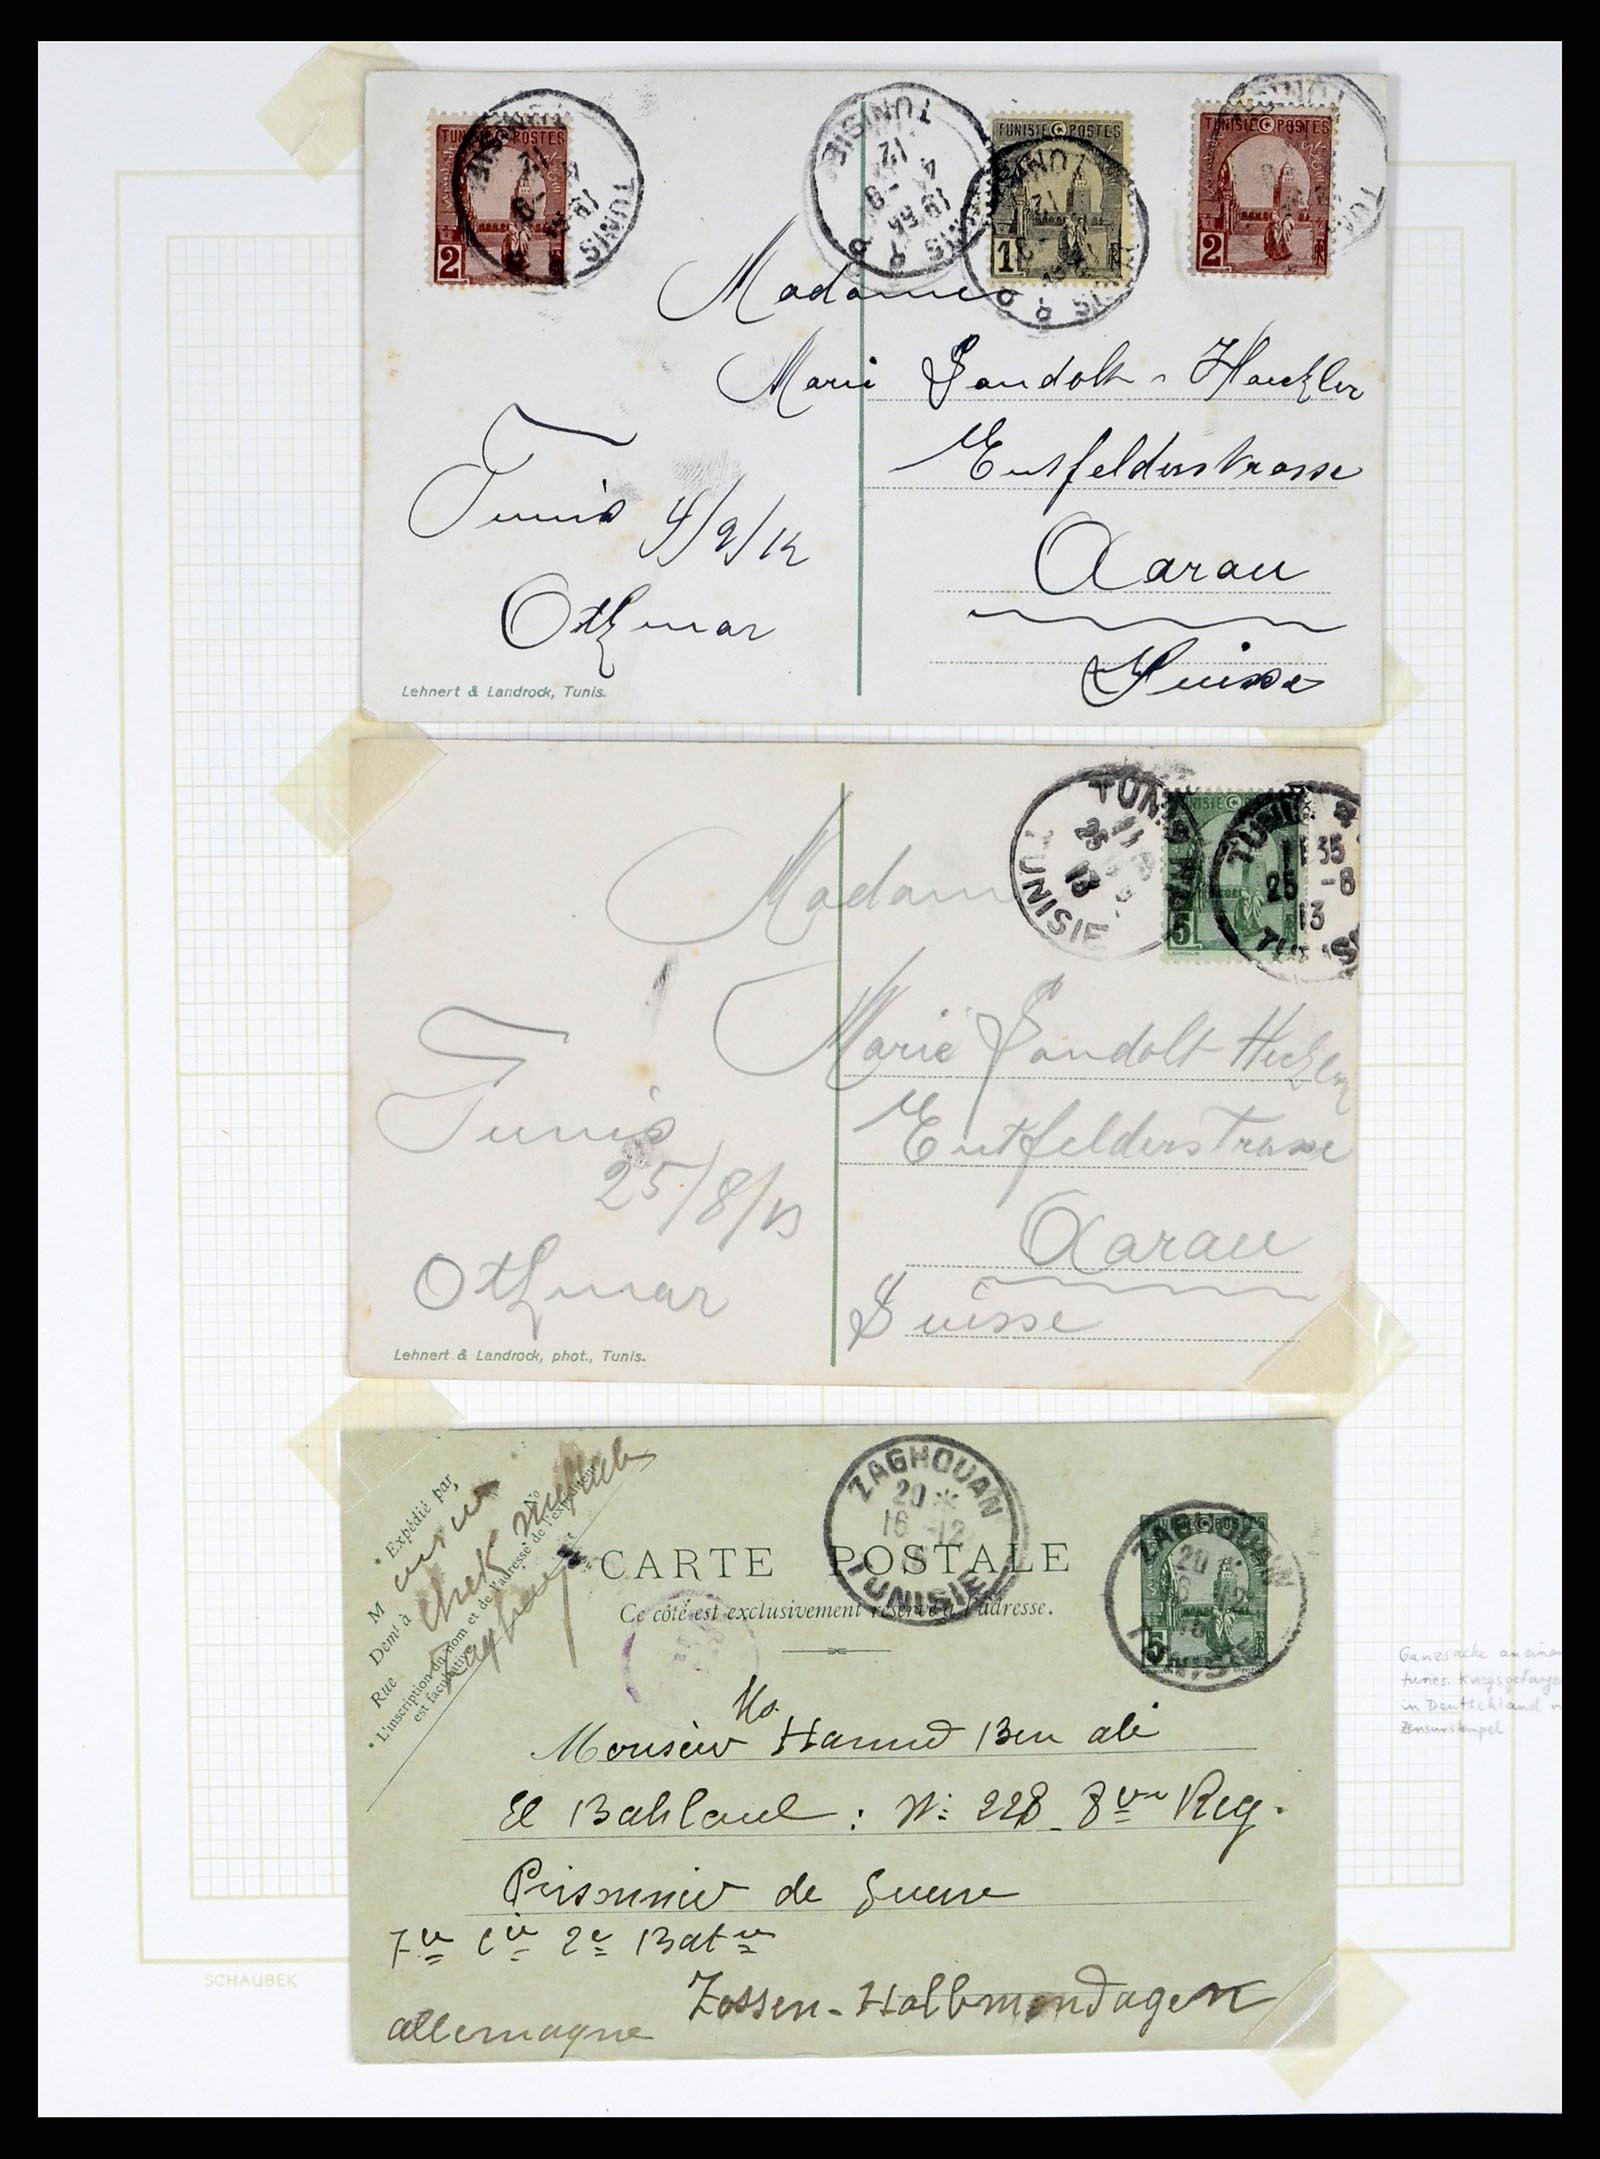 TUNISIE POSTES
2
TUNISIE POSTES
1
TUNISIE POSTES
2
TUNIS
TUNISIE
Madame
Marie Landolt - Haechler
Entfelderstrasse
Aarau
Suisse
Tunis 4/9/12
Othmar
Lehnert & Landrock, Tunis.
TUNIS R.P
25 -8
13
TUNISIE
5
Madame
Marie Landolt
Entfelderstrasse
Aarau
Suisse
Tunis
25/8/13
Othmar
Lehnert & Landrock, phot., Tunis.
* Expédié par
M
Demt à
Rue
No
* L'inscription du nom et de l'adresse de l'expéditeur
est facultative.
CARTE POSTALE
Ce côté est exclusivement réservé à l'adresse.
ZAGHOUAN
20 *
16 -12
TUNISIE
POSTES
5
Monsieur Hamed Ben ali
El Bahlaul : No: 228 8me Reg.
Prisonnier de Guerre
7me Cie 2e Batn
Zossen - Halbmondlagen
allemagne
Ganzsache an einen
tunes. Kriegsgefangen
in Deutschland
Zensurstempel
SCHAUBEK